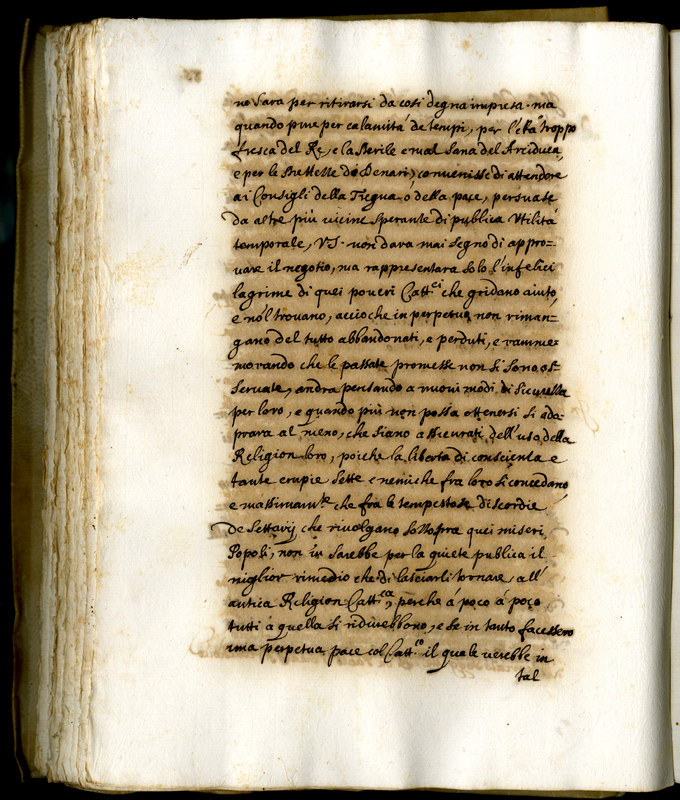 no sara per ritirarsi da cosi degna impresa. ma
quando pure per calamità de tempi, per l'età troppo
fresca del Re, e la sterile e mal sana del Arciduca,
e per le strettesse di Denari, convenisse di attendere
ai Consigli della Tregua ó della pace, persuase
da altre più vicine speranze di publica Utilità
temporale, VS. non dara mai segno di appro=
vare il negotio, ma rappresentara solo l'infelici
lagrime di quei poveri Catt.ci che gridano aiuto,
e no'l trovano, accioche in perpetuo non riman=
gano del tutto abbandonati, e perduti, e ramme=
morando che le passate promesse non si sono os=
servate, andra pensando a nuovi modi di sicurezza
per loro, e quando più non possa ottenersi si ado=
prara al meno, che siano assicurati dell'uso della
Religion loro, poiche la libertà di conscienza e
tante empie sette e nemiche fra loro si concedano
e massimam.te che fra le tempestose discordie
de Settarij che rivolgano sottosopra quei miseri
Popoli, non sarebbe per la quiete publica il
miglior rimedio che di lasciarli tornare, all'
antica Religion Catt.ca, perche á poco á poco
tutti à quella si ridurebbono, e se in tanto facessero
una perpetua pace col Catt.co il quale verebbe in
tal